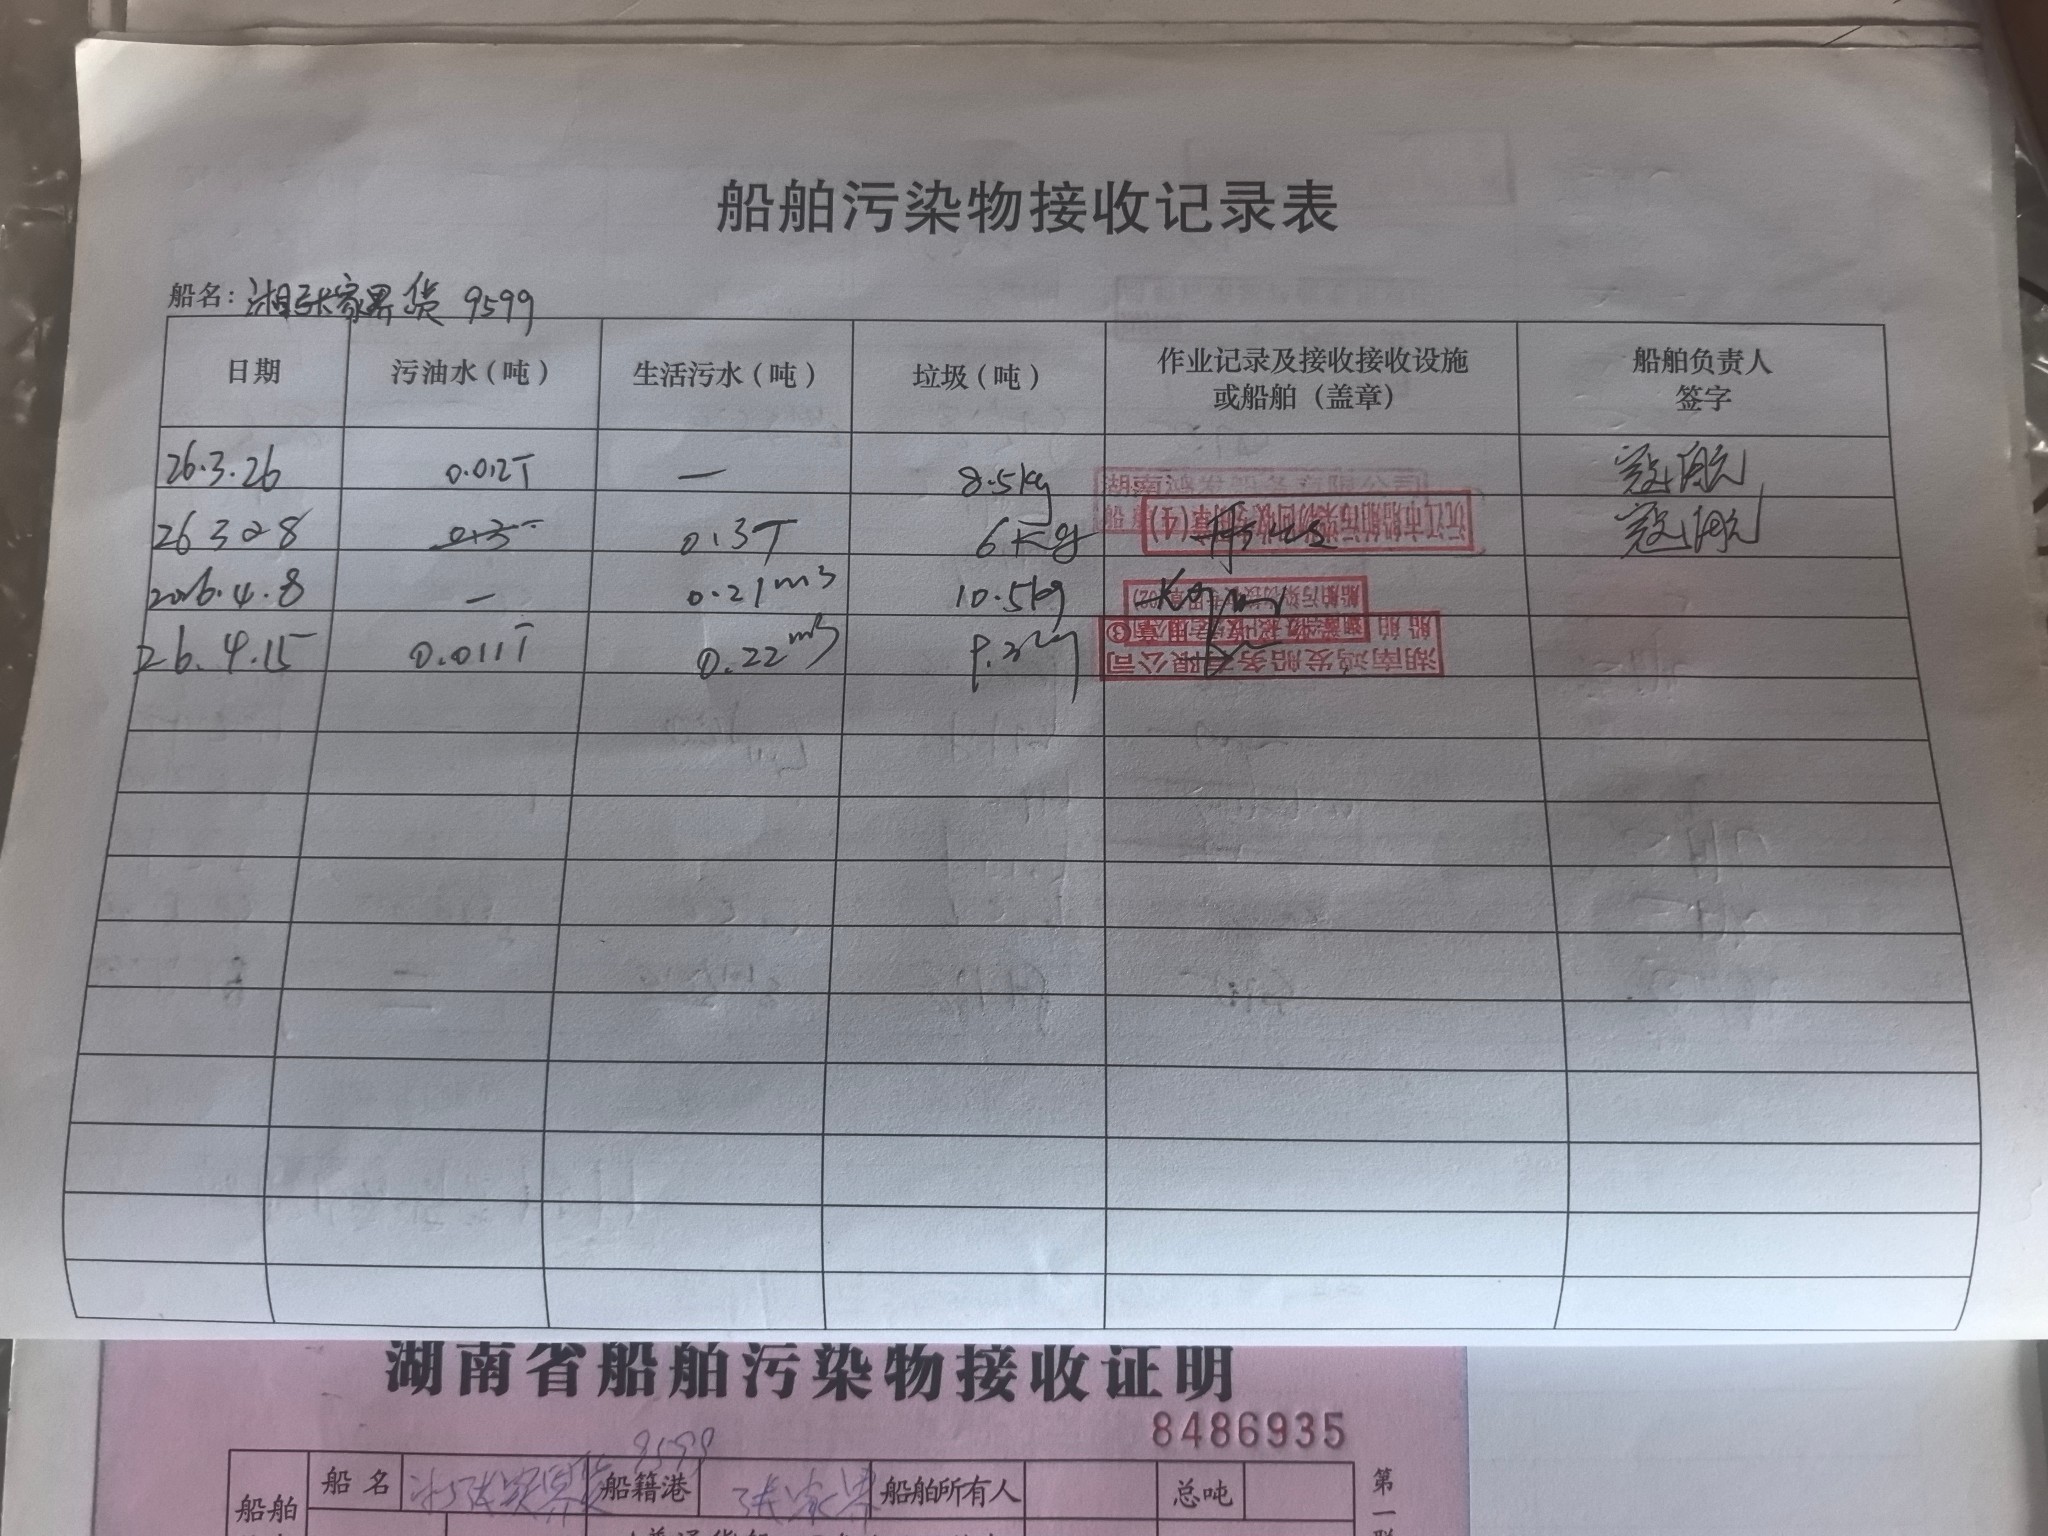 船舶污染物接收记录表
船名：湘张家界货 9599
日期 污油水（吨） 生活污水（吨） 垃圾（吨） 作业记录及接收接收设施或船舶（盖章） 船舶负责人签字
26.3.26 0.012T — 8.5kg 湖南鸿发船务有限公司
26 3 28 0.3T 0.3T 6Kg 沅江市船舶污染物回收专用章(4)
2026.4.8 — 0.21m3 10.5kg
26.4.15 0.011T 0.22m3 9.2kg 湖南鸿发船务有限公司
湖南省船舶污染物接收证明
8486935
船舶 船名 湘张家界货 9599 船籍港 张家界 船舶所有人 总吨
第一联